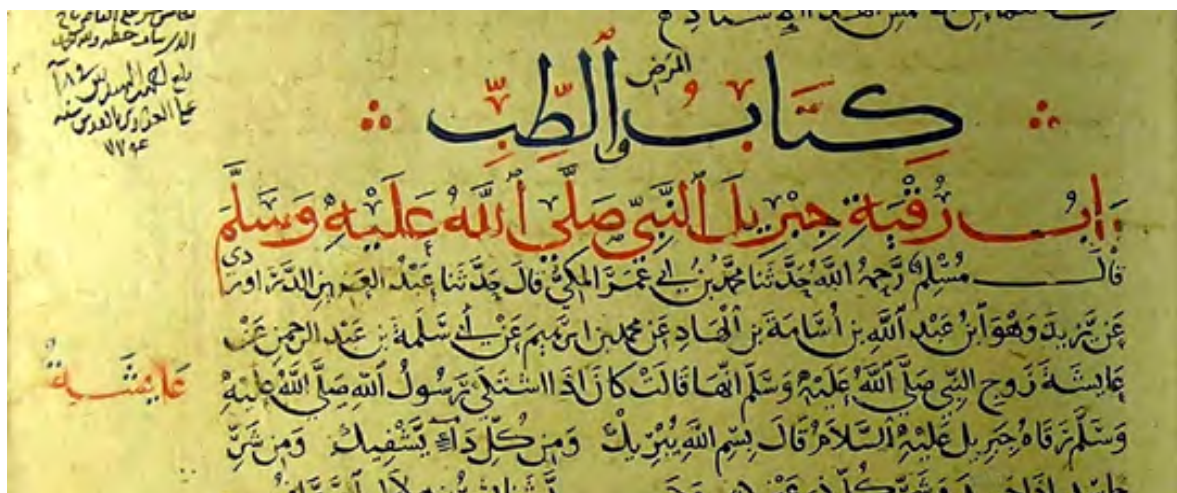 كِتَابُ وَالطِّبِّ
المرض
بابُ رُقْيَةِ جِبْرِيلَ النَّبِيَّ صَلَّى اللَّهُ عَلَيْهِ وَسَلَّمَ
قال مُسْلِمٌ رَحِمَهُ اللَّهُ حَدَّثَنَا مُحَمَّدُ بْنُ أَبِي عُمَرَ المَكِّيُّ قَالَ حَدَّثَنَا عَبْدُ العَزِيزِ الدَّرَاوَرْدِي
عَنْ يَزِيدَ وَهْوَ ابْنُ عَبْدِ اللَّهِ بْنِ أُسَامَةَ بْنِ الْهَادِ عَنْ مُحَمَّدِ بْنِ إِبْرَهِيمَ عَنْ أَبِي سَلَمَةَ بْنِ عَبْدِ الرَّحْمَنِ عَنْ
عَايِشَةُ
عَايِشَةَ زَوْجِ النَّبِيِّ صَلَّى اللَّهُ عَلَيْهِ وَسَلَّمَ انَّهَا قَالَتْ كَانَ اذَا اشْتَكَى رَسُولُ اللَّهِ صَلَّى اللَّهُ عَلَيْهِ
وَسَلَّمَ رَقَاهُ جِبْرِيلُ عَلَيْهِ السَّلَامُ قَالَ بِسْمِ اللَّهِ يُبْرِيكَ وَمِنْ كُلِّ دَاءٍ يَشْفِيكَ وَمِنْ شَرِّ